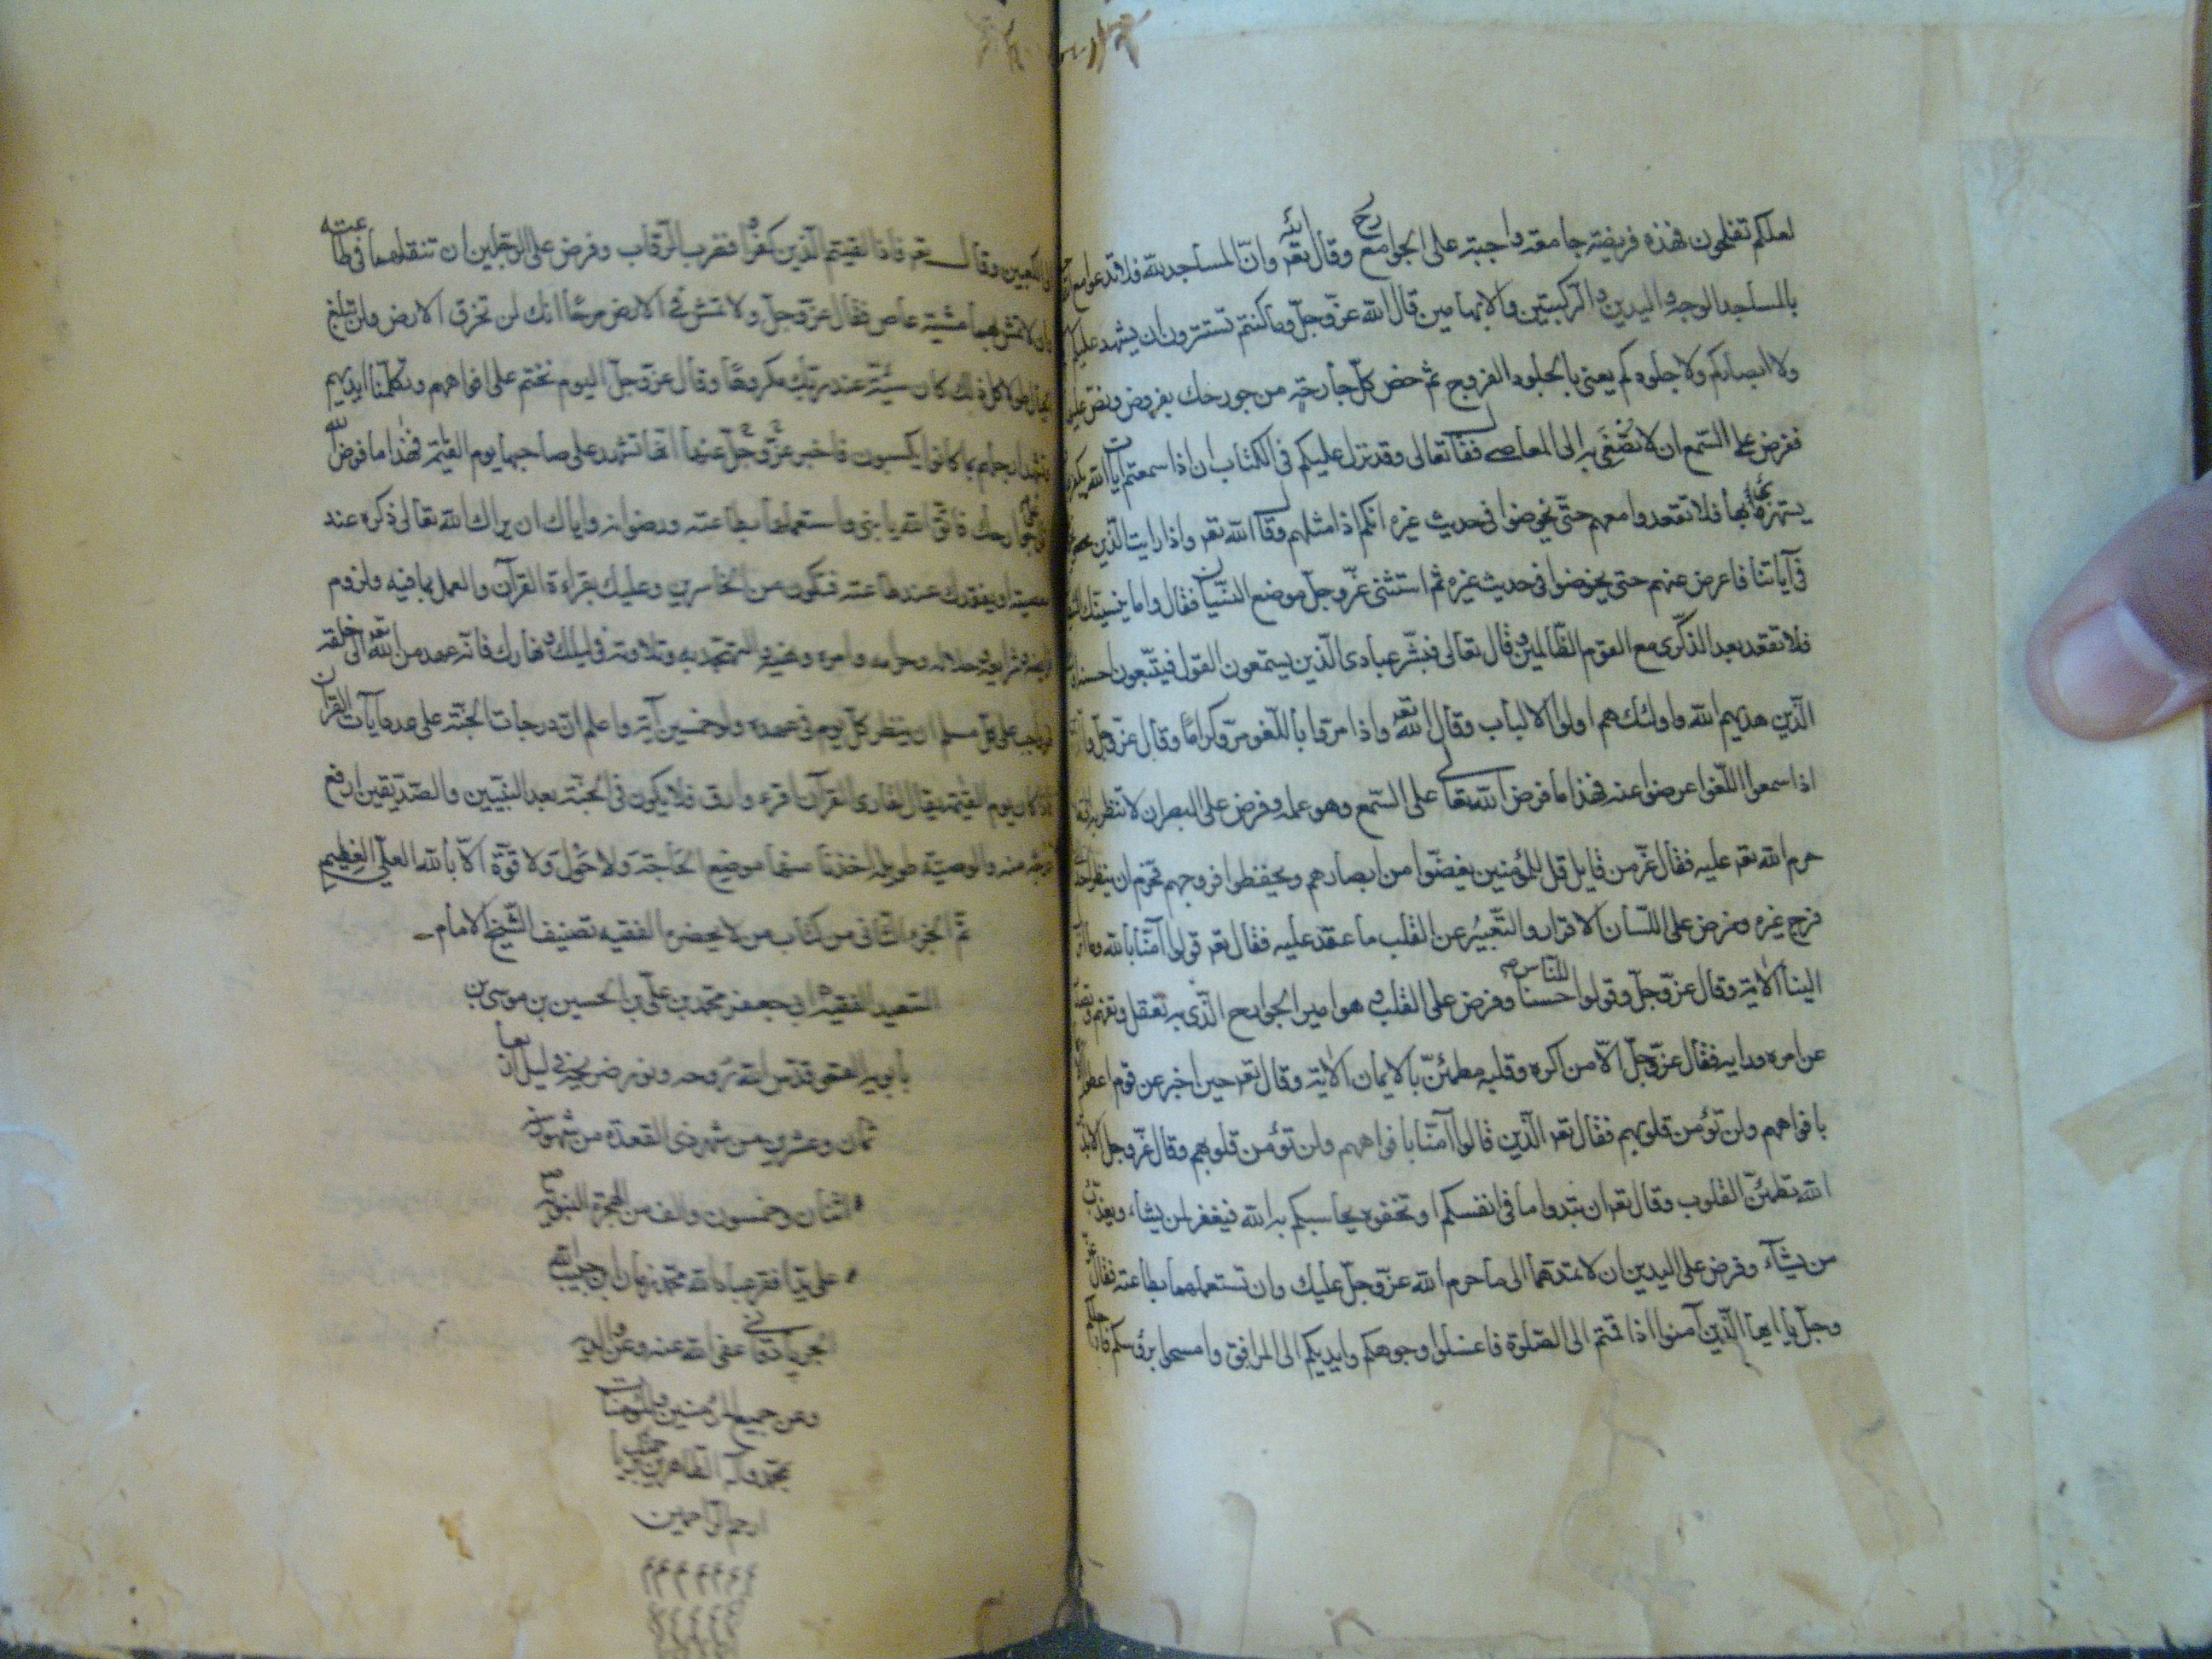 لعلكم تفلحون فهذه فريضة جامعة واجبة على الجوارح وقال تعه وانّ المساجد لله فلا تدعوا مع
بالمساجد الوجه واليدين والركبتين والابهامين قال الله عزّ وجلّ وما كنتم تستترون ان يشهد عليكم
ولا ابصاركم ولا جلودكم يعنى بالجلود الفروج ثم خصّ كلّ جارحة من جوارحك بفرض ونصّ عليها
ففرض على السّمع ان لا تُصْغَى به الى المعاصى فقال تعالى وقد نزل عليكم فى الكتاب ان اذا سمعتم ايات الله يكفر
يستهزئ بها فلا تقعدوا معهم حتّى يخوضوا فى حديث غيره انكم اذا مثلهم وقال الله تعه واذا رايت الذين
فى آياتنا فاعرض عنهم حتى يخوضوا فى حديث غيره ثم استثنى عزّ وجلّ موضع النّسيان فقال واما ينسينّك
فلا تقعد بعد الذكرى مع القوم الظّالمين وقال تعالى فبشّر عبادى الّذين يستمعون القول فيتّبعون احسنه
الّذين هديهم الله واولئك هم اولوا الالباب وقال الله تعه واذا مرّوا باللّغو مرّوا كراما وقال عزّ وجلّ
اذا سمعوا اللّغو اعرضوا عنه فهذا ما فرض الله تعالى على السّمع وهو عمله وفرض على البصر ان لا تنظر به
حرم الله تعه عليه فقال عزّ من قايل قل للمؤمنين يغضّوا من ابصارهم ويحفظوا فروجهم فحرّم ان ينظر
فرج غيره وفرض على اللّسان الاقرار والتّعبير عن القلب ما عقد عليه فقال تعه قولوا آمنّا بالله وما
الينا الاية وقال عزّ وجلّ وقولوا للنّاس حسنا وفرض على القلب وهو امير الجوارح الّذى به تعقل وتفهم
عن امره ورايه فقال عزّ وجلّ الّا من اكره وقلبه مطمئنّ بالايمان الاية وقال تعه حين اخبر عن قوم
بافواههم ولن تؤمن قلوبهم فقال تعه الّذين قالوا آمنّا بافواههم ولن تؤمن قلوبهم وقال عزّ وجل
الله تطمئنّ القلوب وقال تعه ان تبدوا ما فى انفسكم او تخفوه يحاسبكم به الله فيغفر لمن يشاء ويعذب
من يشآء وفرض على اليدين ان لا تمدّهما الى ما حرم الله عزّ وجلّ عليك وان تستعملهما بطاعته فقال
وجلّ يا ايها الّذين آمنوا اذا قمتم الى الصّلوة فاغسلوا وجوهكم وايديكم الى المرافق وامسحوا برؤسكم
الى الكعبين وقال تعه فاذا لقيتم الّذين كفروا فضرب الرّقاب وفرض على الرّجلين ان تنقلهما فى طاعته
وان لا تمش بهما مشية عاص فقال عزّ وجلّ ولا تمش فى الارض مرحًا انك لن تخرق الارض ولن تبلغ
الجبال طولا كل ذلك كان سيّئه عند ربّك مكروها وقال عزّ وجلّ اليوم نختم على افواههم وتكلّمنا ايديهم
وتشهد ارجلهم بما كانوا يكسبون فاخبر عزّ وجلّ عنها انّها تشهد على صاحبها يوم القيمة فهذا ما فرض الله
على جوارحك فاتّق الله يا بنى واستعملها بطاعته ورضوانه واياك ان يراك الله تعالى ذكره عند
معصيته او يفقدك عند طاعته فتكون من الخاسرين وعليك بقراءة القرآن والعمل بما فيه ولزوم
فرايضه وشرايعه وحلاله وحرامه وامره ونهيه والتّهجّد به وتلاوته فى ليلك ونهارك فانّه عهد من الله تعه الى خلقه
فهو واجب على كلّ مسلم ان ينظر كلّ يوم فى عهده ولو خمسين آية واعلم انّ درجات الجنّة على عدد آيات القرآن
فاذا كان يوم القيمة يقال لقارى القرآن اقرء وارق فلا يكون فى الجنّة بعد النبّيين والصّدّيقين ارفع
درجة منه والوصيّة طويلة اخذنا منها موضع الحاجة ولا حول ولا قوّة الّا بالله العلىّ العظيم
تمّ الجزء الثّانى من كتاب من لا يحضره الفقيه تصنيف الشّيخ الامام
السّعيد الفقيه ابى جعفر محمّد بن علىّ بن الحسين بن موسى بن
بابويه القمى قدّس الله روحه ونوّر ضريحه فى ليل
ثمان وعشرين من شهر ذى القعدة من شهور
اثنان وخمسون والف من الهجرة النبويّة
على يد افقر عباد الله محمّد زمان ابن حبيب الله
الجرپادقانى عفى الله عنه وعن والديه
وعن جميع المؤمنين والمؤمنات
بمحمّد وآله الطّاهرين برحمتك يا
ارحم الرّاحمين